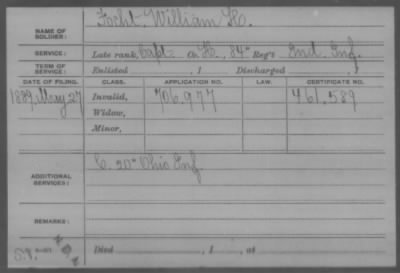 NAME OF SOLDIER: Focht, William H.
SERVICE: Late rank, Capt. Co. H., 84" Reg't Ind. Inf.
TERM OF SERVICE: Enlisted , 1 Discharged , 1
DATE OF FILING. CLASS. APPLICATION NO. LAW. CERTIFICATE NO.
1889, May 27 Invalid, 706.977 461.589
Widow,
Minor,
ADDITIONAL SERVICES: C. 20" Ohio Inf
REMARKS:
Died , 1 , at